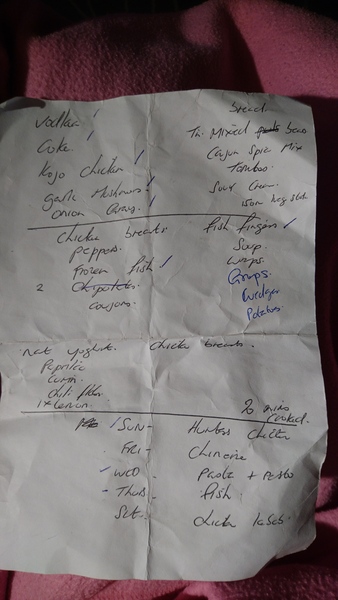 Vodka !
Coke !
Kojo chicken !
garlic Mushrooms !
onion rings !
bread
Tin Mixed beans
Cajun Spice Mix
Tomatoes
Sour Cream
chicken breasts
Peppers
Frozen fish
2 Chipolatas
goujons
fish fingers
Soup
wraps
Crisps
Wedges
Potatoes
nat yoghurt. chicken breasts.
Paprika
Cumin
chilli flakes
1x lemon
20 mins
cooked.
SUN - Hunters Chicken
FRI - Chinese
WED - Pasta + Pesto
THURS - fish
SAT - chicken kebabs